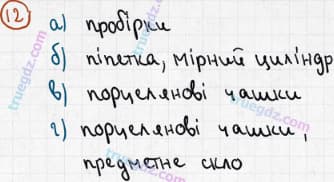 12 а) пробірки
б) піпетка, мірний циліндр
в) порцелянові чашки
г) порцелянові чашки,
предметне скло
truegdz.com
truegdz.com
truegdz.com